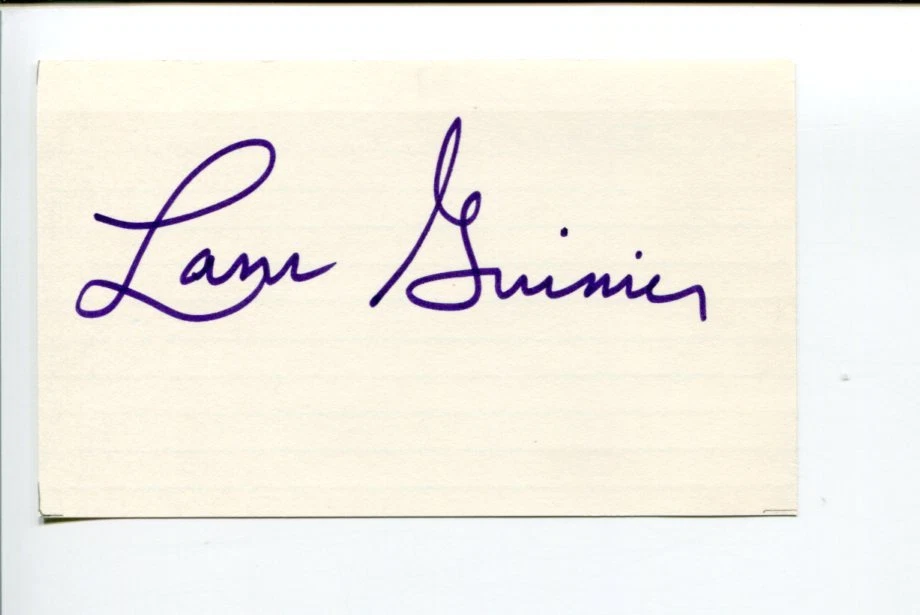 Lani Guinier